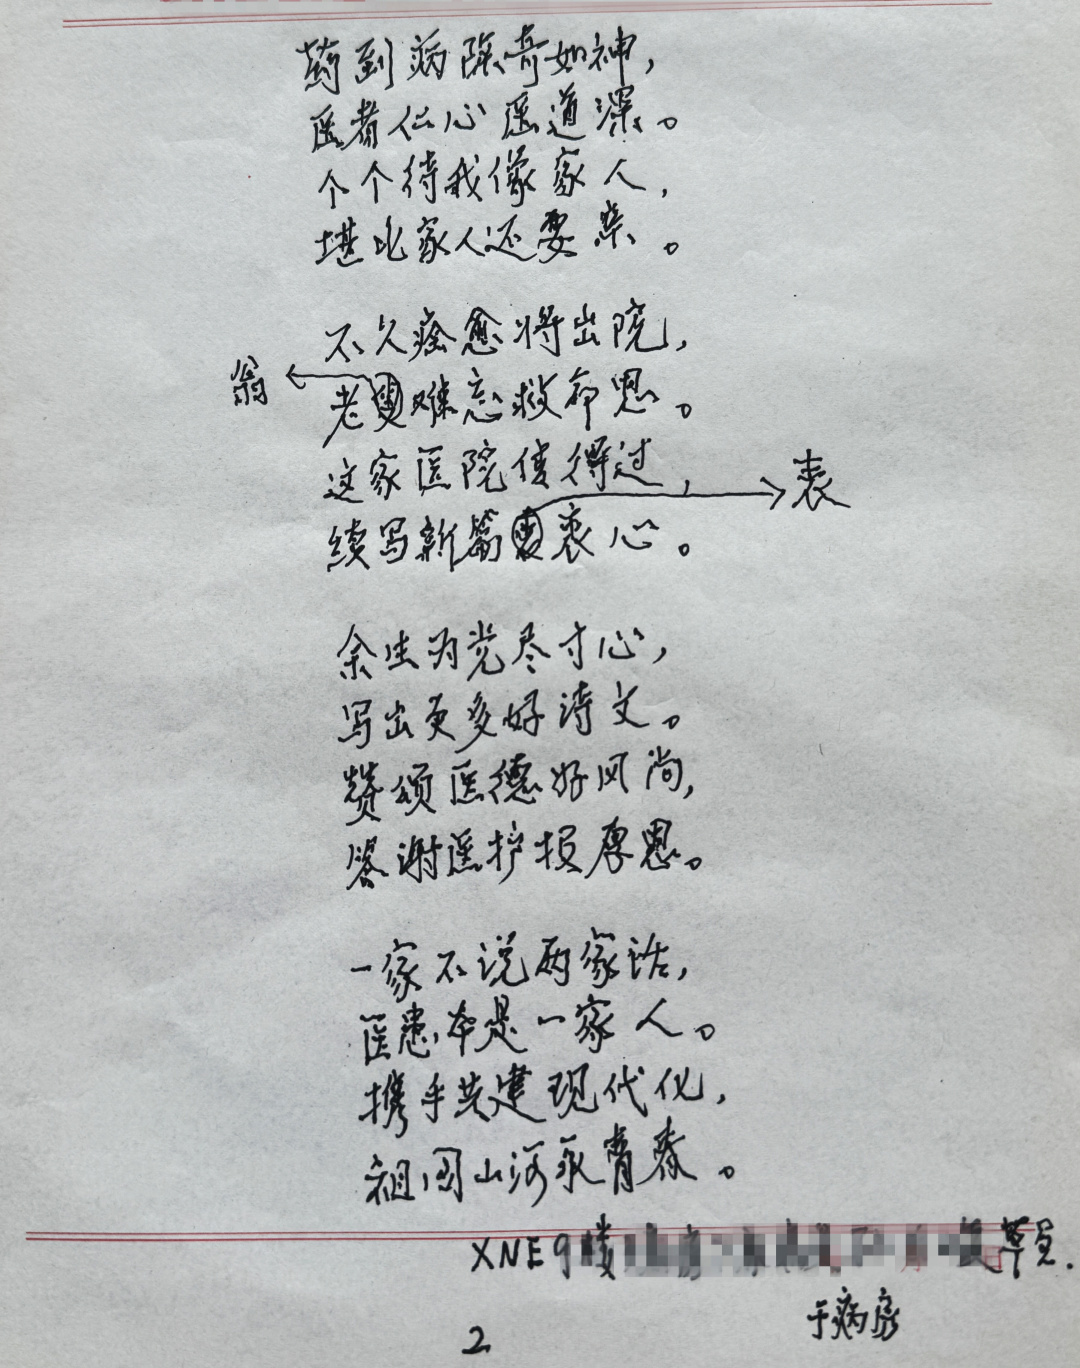 药到病除奇如神，
医者仁心医道深。
个个待我像家人，
堪比家人还要亲。
不久痊愈将出院，
翁
老叟难忘救命恩。
这家医院信得过，
表
续写新篇表衷心。
余生为党尽寸心，
写出更多好诗文。
赞颂医德好风尚，
答谢医护报厚恩。
一家不说两家话，
医患本是一家人。
携手共建现代化，
祖国山河永青春。
XNE9楼 草。
于病房
2